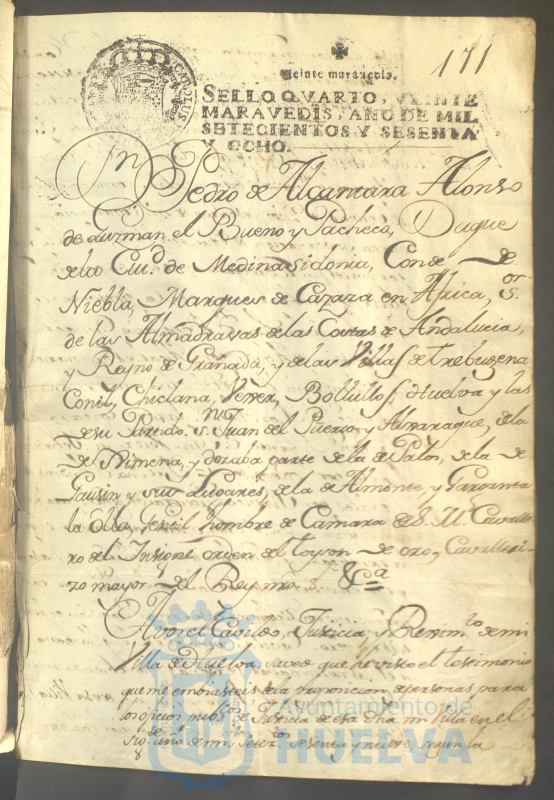 171
Veinte maravedis.
SELLO QVARTO, VEINTE
MARAVEDIS, AÑO DE MIL
SETECIENTOS Y SESENTA
Y OCHO.
CAROLUS
Dn Pedro de Alcantara Alonso
de Guzman el Bueno y Pacheco, Duque
de la Ciud. de Medina Sidonia, Conde de
Niebla, Marques de Cazaza en Africa, S.or
de las Almadravas de las Costas de Andalucia,
y Reyno de Granada, y de las Villas de Trebugena
Conil, Chiclana, Vexer, Bollullos, Huelva y las
de su Partido Sn. Juan del Puerto y Alxaraque, de la
de Ximena, y dozaba parte de la de Palos, de la de
Gausin y sus Lugares, de la de Almonte, y Garganta
la Olla, Gentil hombre de Camara de S. M. Cavalle
ro del Insigne orden del toyson de oro, Cavalleri-
zo mayor del Rey nro. S. &Ca
Avos el Cavildo, Justicia y Reximto. de mi
Villa de Huelva, saved que he visto el testimonio
que me embiasteis de la proposicion de personas para
los oficios pubcos. de Justicia de esa dha mi Villa en el
año de mil Setecitos. sesenta y nueve segun la
Ayuntamiento de
HUELVA